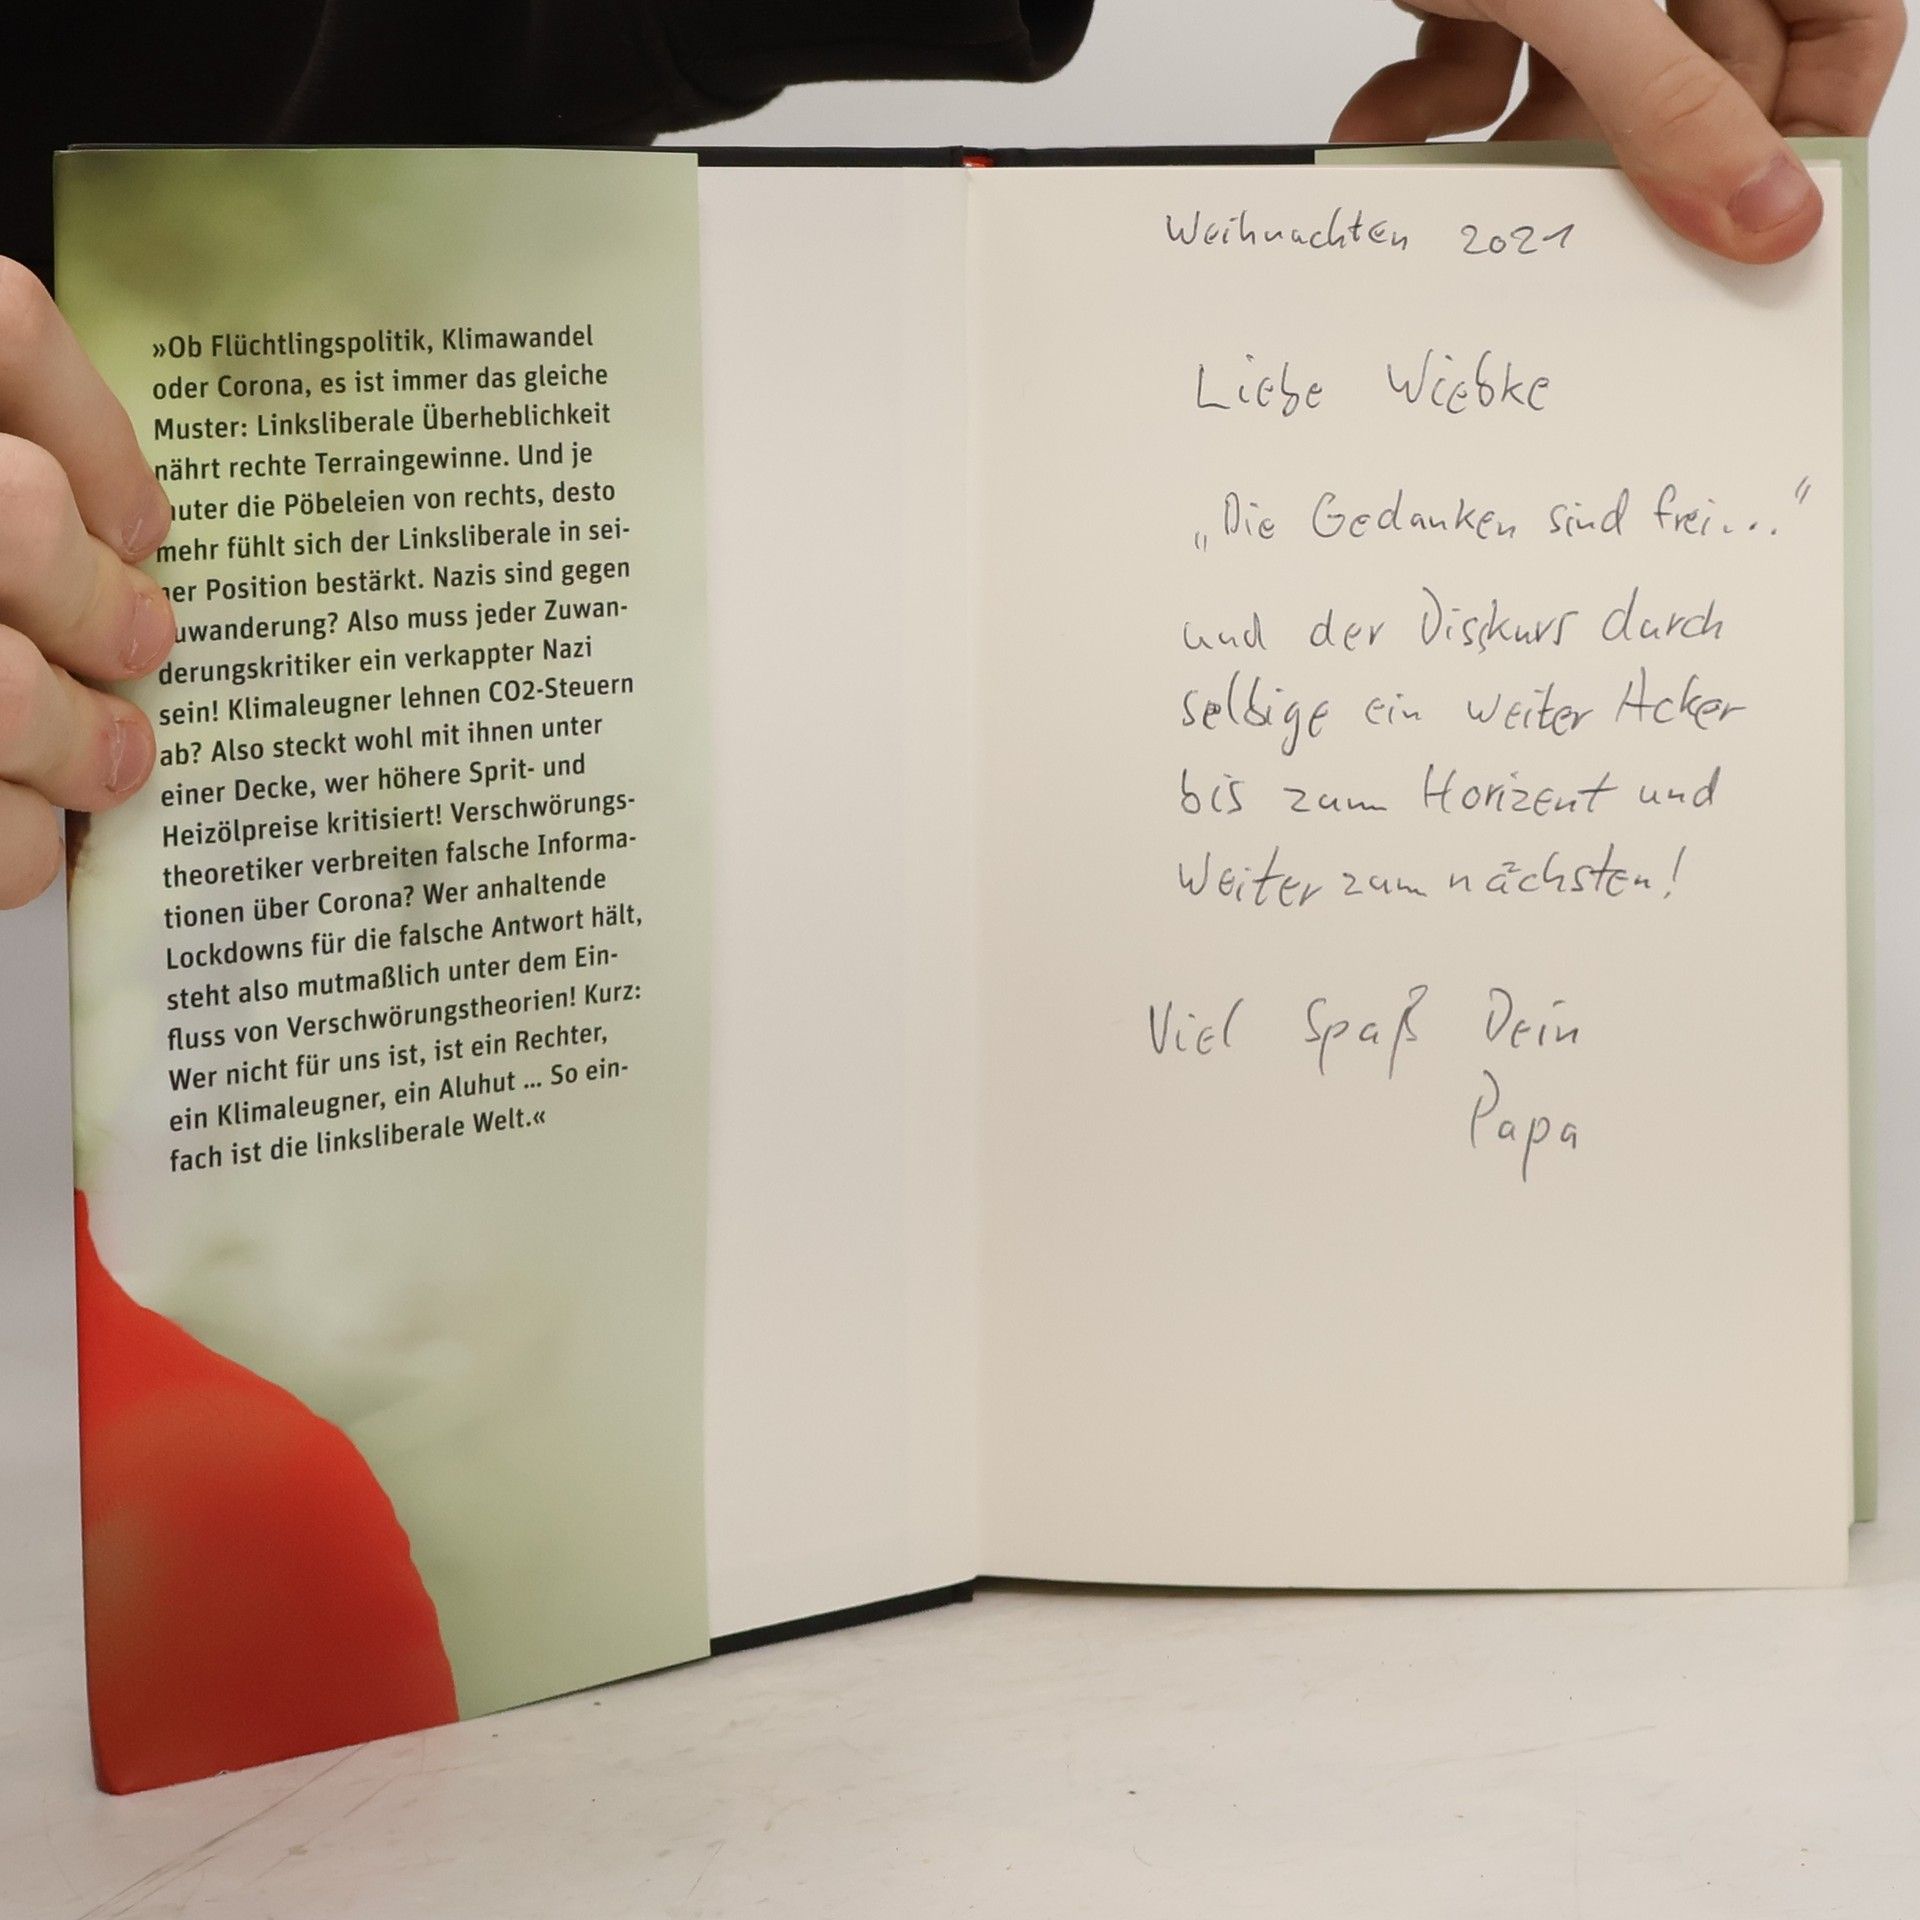 »Ob Flüchtlingspolitik, Klimawandel
oder Corona, es ist immer das gleiche
Muster: Linksliberale Überheblichkeit
nährt rechte Terraingewinne. Und je
auter die Pöbeleien von rechts, desto
mehr fühlt sich der Linksliberale in sei-
ner Position bestärkt. Nazis sind gegen
uwanderung? Also muss jeder Zuwan-
derungskritiker ein verkappter Nazi
sein! Klimaleugner lehnen CO2-Steuern
ab? Also steckt wohl mit ihnen unter
einer Decke, wer höhere Sprit- und
Heizölpreise kritisiert! Verschwörungs-
theoretiker verbreiten falsche Informa-
tionen über Corona? Wer anhaltende
Lockdowns für die falsche Antwort hält,
steht also mutmaßlich unter dem Ein-
fluss von Verschwörungstheorien! Kurz:
Wer nicht für uns ist, ist ein Rechter,
ein Klimaleugner, ein Aluhut ... So ein-
fach ist die linksliberale Welt.«
Weihnachten 2021
Liebe Wiebke
„Die Gedanken sind frei..."
und der Diskurs durch
selbige ein weiter Acker
bis zum Horizont und
weiter zum nächsten!
Viel Spaß Dein
Papa